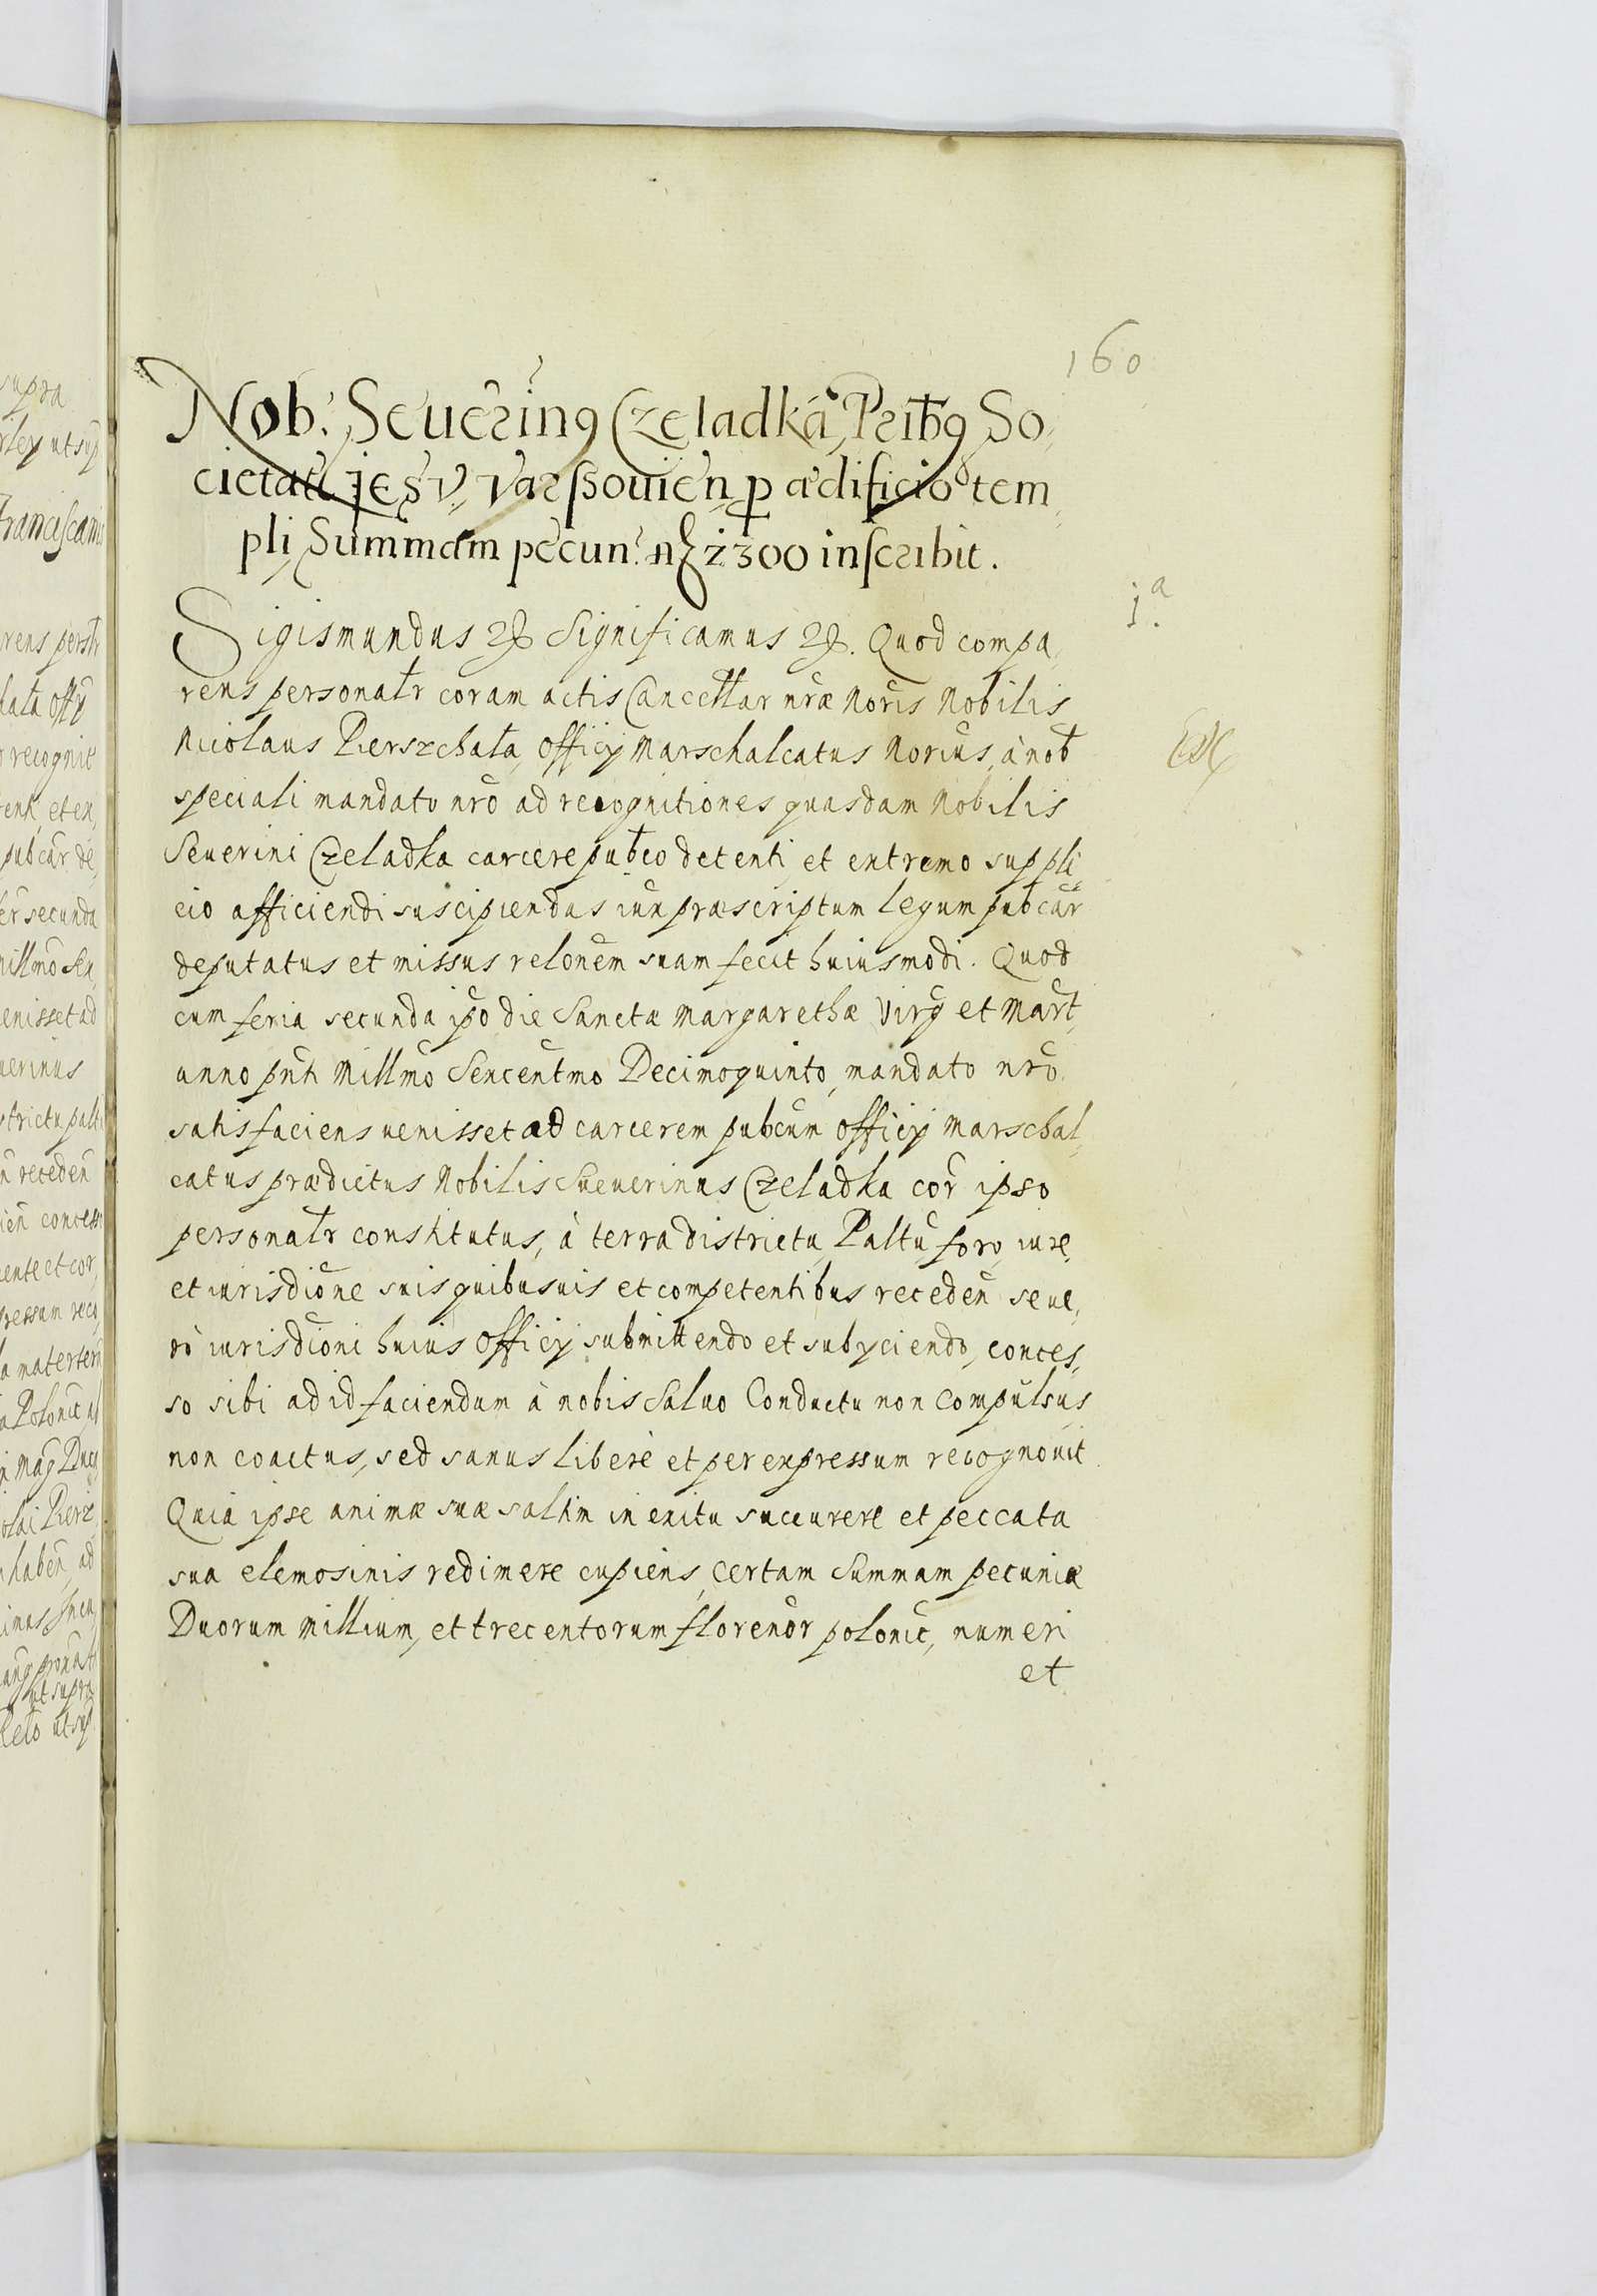 160
Nob. Seuerin9 Czeladka Prib9 So,
cietatis IESV Varssouien. p ædificio tem,
pli, Summam pecun. fl 2300 inscribit.
1a.
Sigismundus Significamus Quod compa,
rens personalr coram actis Cancellar nræ Noris Nobilis
Nicolaus Pierszchała, Officij Marschalcatus Norius, à nob
speciali mandato nro ad recognitiones quasdam Nobilis
Seuerini Czeladka carcere pubco detenti, et extremo suppli,
cio afficiendi suscipiendas iuxpræscriptum legum pubcar
deputatus et missus relonem suam fecit huiusmodi. Quod
cum feria secunda ipo die Sanctæ Margarethæ Virg et Mart
anno pnti Millmo Sexcentmo Decimoquinto, mandato nro
satisfaciens uenisset ad carcerem pubcum Officij Marschal,
catus prædictus Nobilis Sueuerinus Czeladka cor ipso
personalr constitutus, à terra districtu, Paltu foro, iure
et iurisdione suis quibusuis et competentibus receden seue,
rò iurisdioni huius Officij submittendo et subyciendo, conces,
so sibi ad id faciendum à nobis Saluo Conductu non compulsus
non coactus, sed sanus liberè et per expressum recognouit.
Quia ipse animæ suæ saltim in exitu succurere et peccata
sua elemosinis redimere cupiens, certam Summam pecuniæ
Duorum Millium, et trecentorum florenor polonic, numeri
et
supra
Franciscanis
recognit
er secunda
enisset ad
uerinus
ut supra